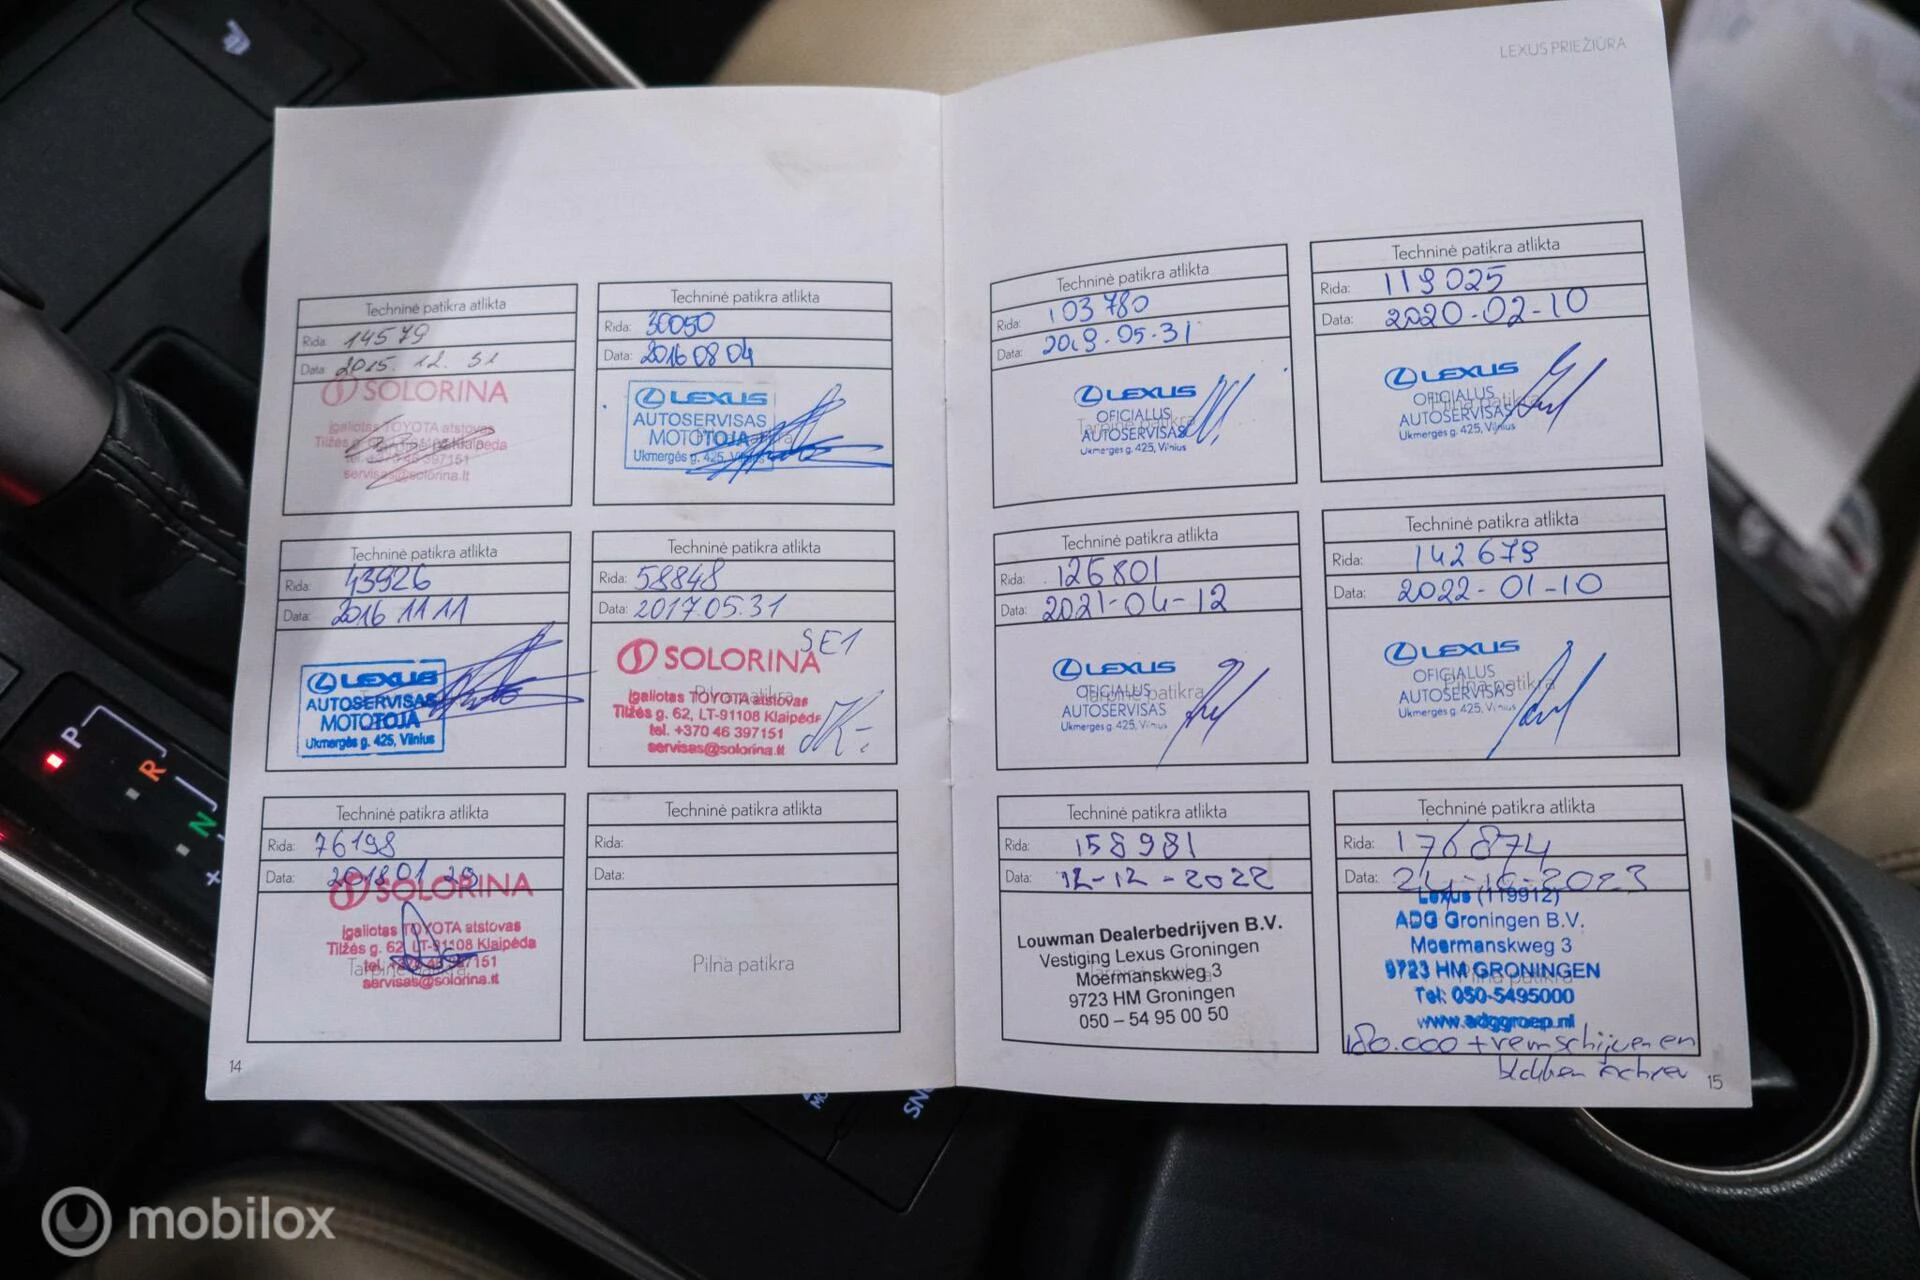 LEXUS PRIEŽIŪRA
Techninė patikra atlikta
Rida: 14579
Data: 2015. 12. 31
SOLORINA
Įgaliotas TOYOTA atstovas
Tilžės g. Klaipėda
tel. +370 46 397151
servisas@solorina.lt
Techninė patikra atlikta
Rida: 30050
Data: 2016 08 04
LEXUS
AUTOSERVISAS
MOTOTOJA
Ukmergės g. 425, Vilnius
Techninė patikra atlikta
Rida: 43926
Data: 2016 11 11
LEXUS
AUTOSERVISAS
MOTOTOJA
Ukmergės g. 425, Vilnius
Techninė patikra atlikta
Rida: 58848
Data: 2017.05.31
SE1
SOLORINA
Pilna patikra
Įgaliotas TOYOTA atstovas
Tilžės g. 62, LT-91108 Klaipėda
tel. +370 46 397151
servisas@solorina.lt
Techninė patikra atlikta
Rida: 76198
Data: 2018 01 29
SOLORINA
Įgaliotas TOYOTA atstovas
Tilžės g. 62, LT-91108 Klaipėda
tel. +370 46 397151
Tarpinė patikra
servisas@solorina.lt
Techninė patikra atlikta
Rida:
Data:
Pilna patikra
14
Techninė patikra atlikta
Rida: 103780
Data: 2019-05-31
LEXUS
OFICIALUS
Tarpinė patikra
AUTOSERVISAS
Ukmergės g. 425, Vilnius
Techninė patikra atlikta
Rida: 119025
Data: 2020-02-10
LEXUS
OFICIALUS
Pilna patikra
AUTOSERVISAS
Ukmergės g. 425, Vilnius
Techninė patikra atlikta
Rida: 126801
Data: 2021-04-12
LEXUS
OFICIALUS
Tarpinė patikra
AUTOSERVISAS
Ukmergės g. 425, Vilnius
Techninė patikra atlikta
Rida: 142679
Data: 2022-01-10
LEXUS
OFICIALUS
Pilna patikra
AUTOSERVISAS
Ukmergės g. 425, Vilnius
Techninė patikra atlikta
Rida: 158981
Data: 12-12-2022
Louwman Dealerbedrijven B.V.
Vestiging Lexus Groningen
Moermanskweg 3
9723 HM Groningen
050 – 54 95 00 50
Techninė patikra atlikta
Rida: 176874
Data: 24-10-2023
Lexus (119912)
ADG Groningen B.V.
Moermanskweg 3
9723 HM GRONINGEN
Tel: 050-5495000
www.adggroep.nl
180.000 + remschijven en
blokken achter
15
P
R
N
+
mobilox